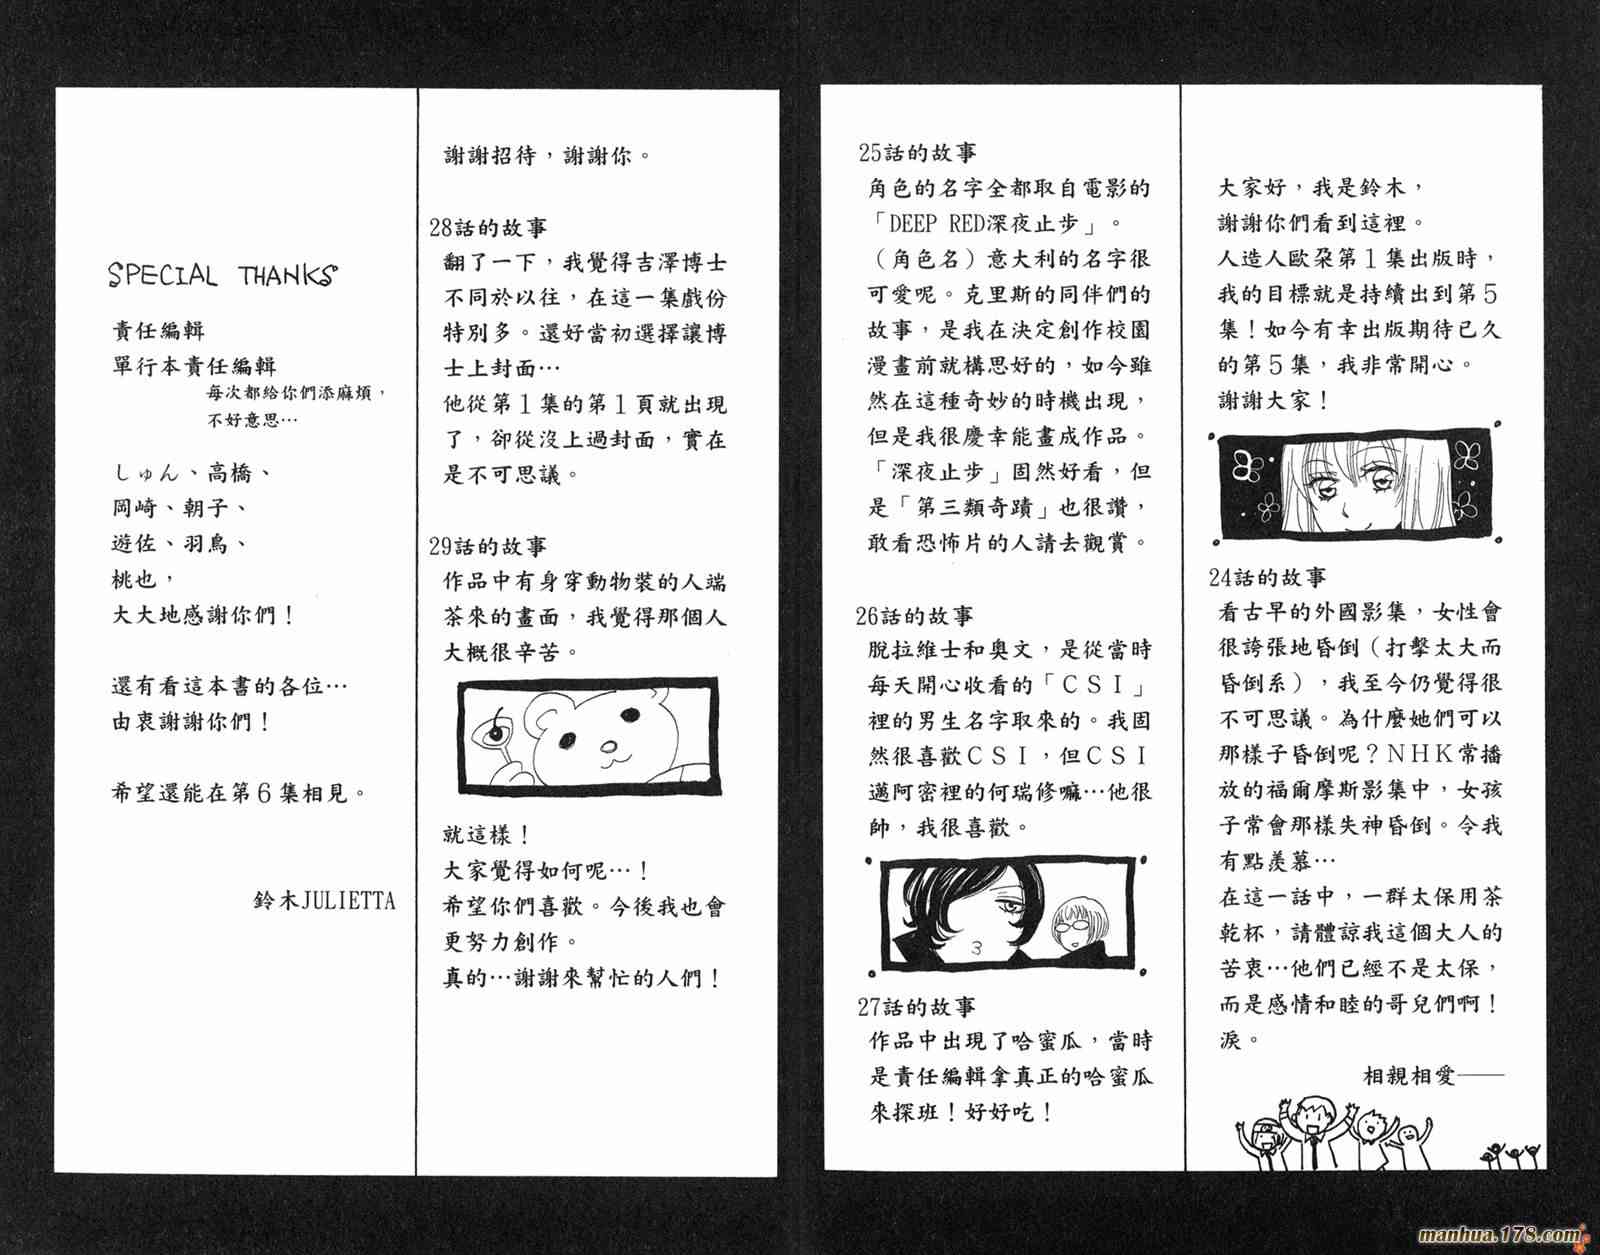 大家好，我是鈴木，
謝謝你們看到這裡。
人造人歐朶第１集出版時，
我的目標就是持續出到第５
集！如今有幸出版期待已久
的第５集，我非常開心。
謝謝大家！
24話的故事
看古早的外國影集，女性會
很誇張地昏倒（打擊太大而
昏倒系），我至今仍覺得很
不可思議。為什麼她們可以
那樣子昏倒呢？ＮＨＫ常播
放的福爾摩斯影集中，女孩
子常會那樣失神昏倒。令我
有點羨慕…
在這一話中，一群太保用茶
乾杯，請體諒我這個大人的
苦衷…他們已經不是太保，
而是感情和睦的哥兒們啊！
淚。
相親相愛——
25話的故事
角色的名字全都取自電影的
「DEEP RED深夜止步」。
（角色名）意大利的名字很
可愛呢。克里斯的同伴們的
故事，是我在決定創作校園
漫畫前就構思好的，如今雖
然在這種奇妙的時機出現，
但是我很慶幸能畫成作品。
「深夜止步」固然好看，但
是「第三類奇蹟」也很讚，
敢看恐怖片的人請去觀賞。
26話的故事
脫拉維士和奧文，是從當時
每天開心收看的「ＣＳＩ」
裡的男生名字取來的。我固
然很喜歡ＣＳＩ，但ＣＳＩ
邁阿密裡的何瑞修嘛…他很
帥，我很喜歡。
27話的故事
作品中出現了哈蜜瓜，當時
是責任編輯拿真正的哈蜜瓜
來探班！好好吃！
謝謝招待，謝謝你。
28話的故事
翻了一下，我覺得吉澤博士
不同於以往，在這一集戲份
特別多。還好當初選擇讓博
士上封面…
他從第１集的第１頁就出現
了，卻從沒上過封面，實在
是不可思議。
29話的故事
作品中有身穿動物裝的人端
茶來的畫面，我覺得那個人
大概很辛苦。
就這樣！
大家覺得如何呢…！
希望你們喜歡。今後我也會
更努力創作。
真的…謝謝來幫忙的人們！
SPECIAL THANKS
責任編輯
單行本責任編輯
每次都給你們添麻煩，
不好意思…
しゅん、高橋、
岡崎、朝子、
遊佐、羽鳥、
桃也，
大大地感謝你們！
還有看這本書的各位…
由衷謝謝你們！
希望還能在第６集相見。
鈴木JULIETTA
manhua.178.com